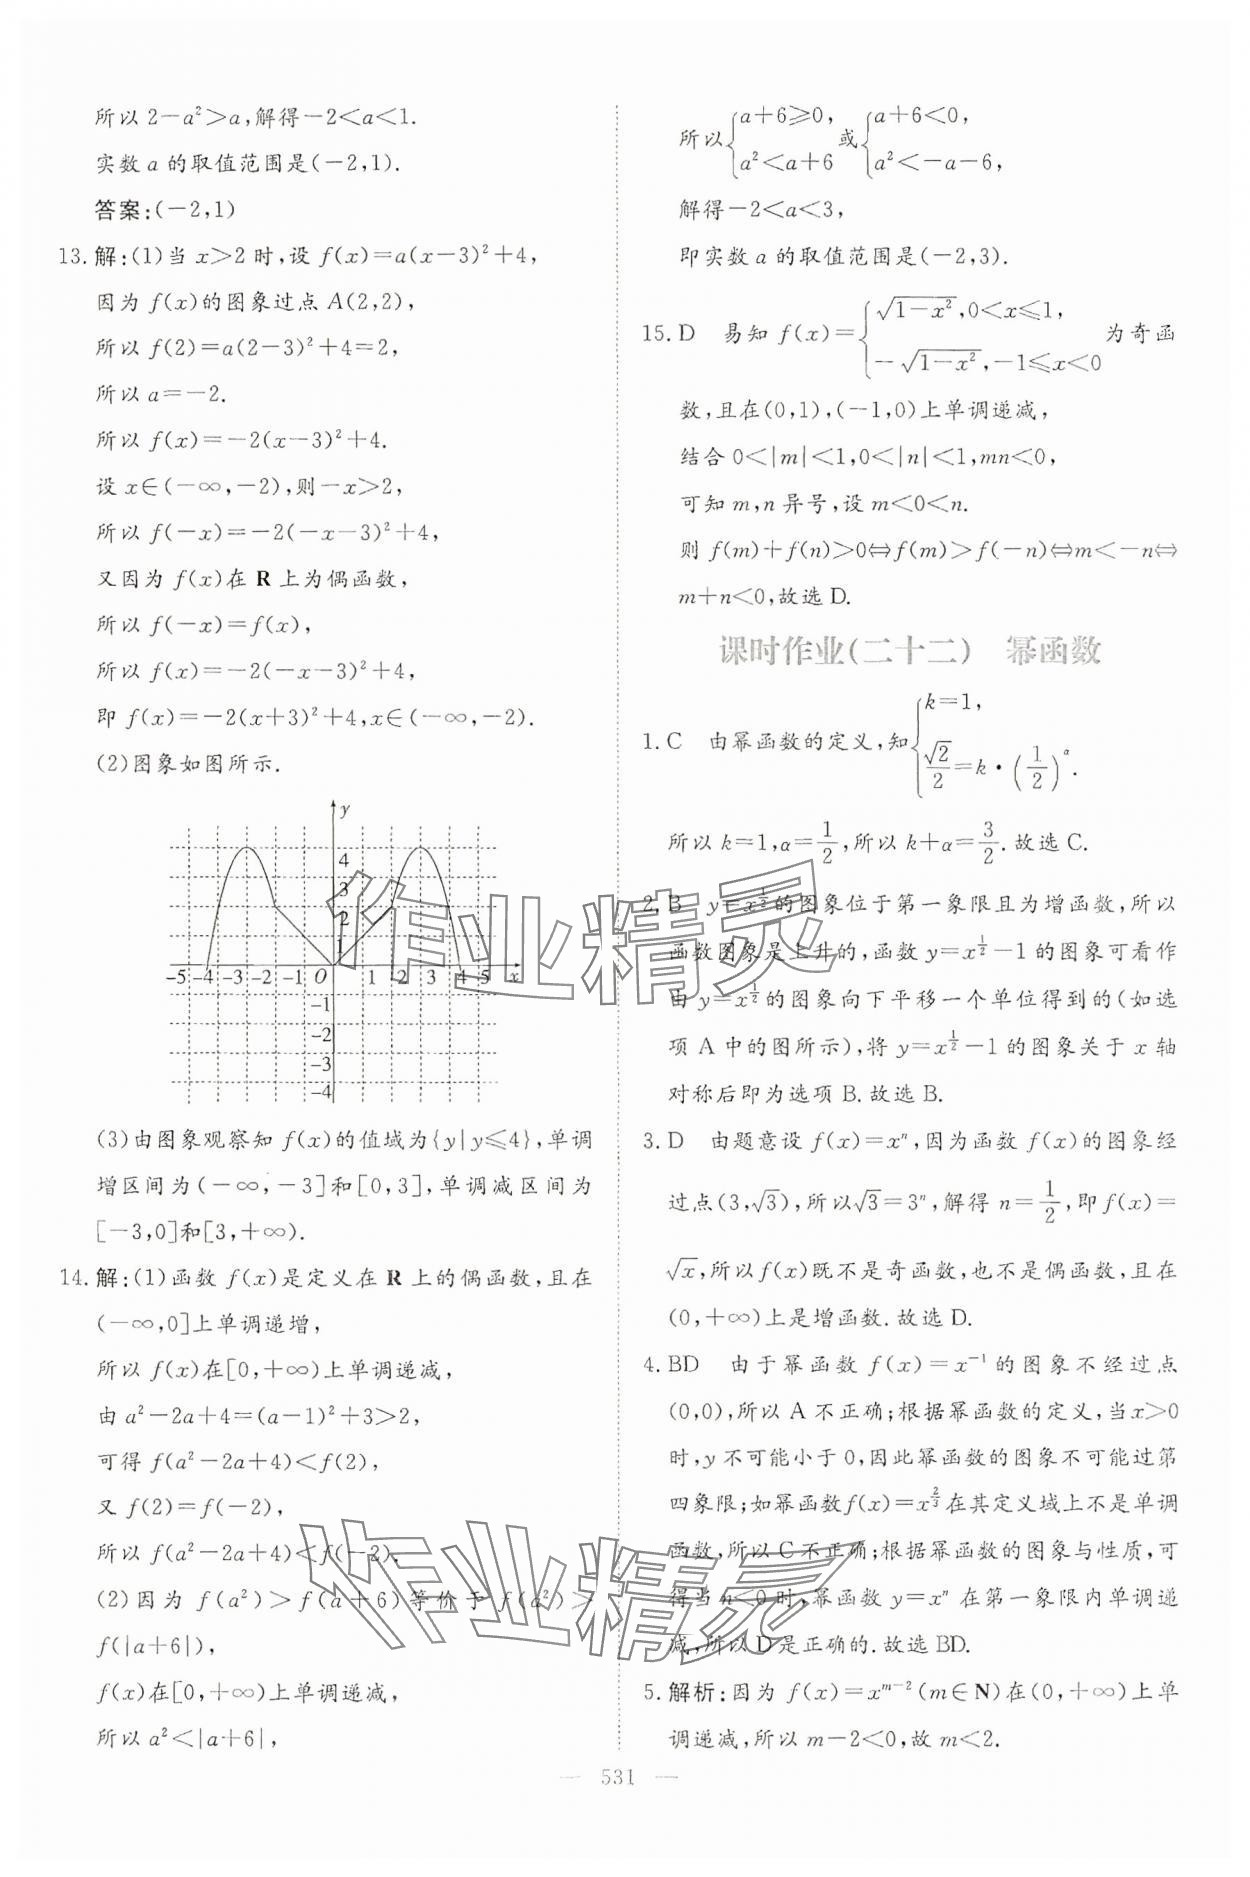 所以 2-a²>a,解得-2<a<1.
实数 a 的取值范围是(-2,1).
答案:(-2,1)
13. 解:(1)当 x>2 时,设 f(x)=a(x-3)²+4,
因为 f(x)的图象过点 A(2,2),
所以 f(2)=a(2-3)²+4=2,
所以 a=-2.
所以 f(x)=-2(x-3)²+4.
设 x∈(-∞,-2),则-x>2,
所以 f(-x)=-2(-x-3)²+4,
又因为 f(x)在 R 上为偶函数,
所以 f(-x)=f(x),
所以 f(x)=-2(-x-3)²+4,
即 f(x)=-2(x+3)²+4,x∈(-∞,-2).
(2)图象如图所示.
y
4
3
2
1
-5 -4 -3 -2 -1 O 1 2 3 4 5 x
-1
-2
-3
-4
(3)由图象观察知 f(x)的值域为{y|y≤4},单调
增区间为(-∞,-3]和[0,3],单调减区间为
[-3,0]和[3,+∞).
14. 解:(1)函数 f(x)是定义在 R 上的偶函数,且在
(-∞,0]上单调递增,
所以 f(x)在[0,+∞)上单调递减,
由 a²-2a+4=(a-1)²+3>2,
可得 f(a²-2a+4)<f(2),
又 f(2)=f(-2),
所以 f(a²-2a+4)<f(-2).
(2)因为 f(a²)>f(a+6)等价于 f(a²)>
f(|a+6|),
f(x)在[0,+∞)上单调递减,
所以 a²<|a+6|,
所以{a+6≥0, a²<a+6 或{a+6<0, a²<-a-6,
解得-2<a<3,
即实数 a 的取值范围是(-2,3).
15. D 易知 f(x)={√(1-x²),0<x≤1, -√(1-x²),-1≤x<0 为奇函
数,且在(0,1),(-1,0)上单调递减,
结合 0<|m|<1,0<|n|<1,mn<0,
可知 m,n 异号,设 m<0<n.
则 f(m)+f(n)>0⇔f(m)>f(-n)⇔m<-n⇔
m+n<0,故选 D.
课时作业(二十二) 幂函数
1. C 由幂函数的定义,知{k=1, √2/2=k·(1/2)^α.
所以 k=1,α=1/2,所以 k+α=3/2.故选 C.
2. B y=x^(1/2)的图象位于第一象限且为增函数,所以
函数图象是上升的,函数 y=x^(1/2)-1 的图象可看作
由 y=x^(1/2)的图象向下平移一个单位得到的(如选
项 A 中的图所示),将 y=x^(1/2)-1 的图象关于 x 轴
对称后即为选项 B.故选 B.
3. D 由题意设 f(x)=xⁿ,因为函数 f(x)的图象经
过点(3,√3),所以√3=3ⁿ,解得 n=1/2,即 f(x)=
√x,所以 f(x)既不是奇函数,也不是偶函数,且在
(0,+∞)上是增函数.故选 D.
4. BD 由于幂函数 f(x)=x⁻¹的图象不经过点
(0,0),所以 A 不正确;根据幂函数的定义,当 x>0
时,y 不可能小于 0,因此幂函数的图象不可能过第
四象限;如幂函数f(x)=x^(2/3)在其定义域上不是单调
函数,所以 C 不正确;根据幂函数的图象与性质,可
得当 n<0 时,幂函数 y=xⁿ 在第一象限内单调递
减,所以 D 是正确的.故选 BD.
5. 解析:因为 f(x)=x^(m-2)(m∈N)在(0,+∞)上单
调递减,所以 m-2<0,故 m<2.
— 531 —
作业精灵
作业精灵